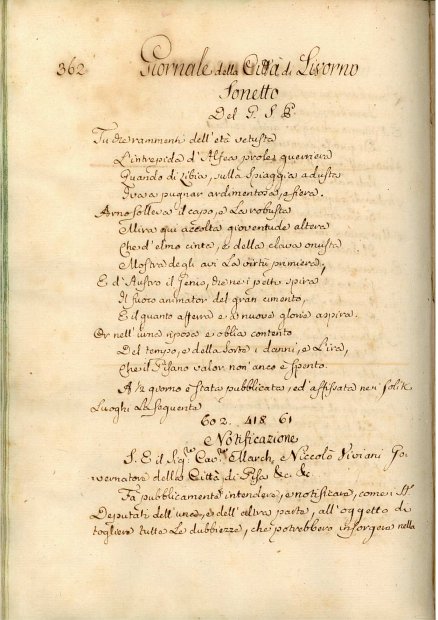 362 Giornale della Città di Livorno
Sonetto
Del G. S. P.
Tu che rammenti dell'età vetusta
L'intrepida d'Alfea prole guerriera
Quando di Libia, sulla spiaggia adusta
Iva a pugnar ardimentosa, e fiera.
Arno solleva il capo, e la robusta
Mira qui accolta gioventude altera
Che d'elmo cinta, e della clava onusta
Mostra degli avi la virtù primiera,
E d'Austro il Genio, che ne i petti spira
Il fuoco animator del gran cimento,
E il quanto afferra e a nuove glorie aspira.
Or nell'urna riposa e oblia contento
Del tempo, e della sorte i danni, e l'ira,
Che il Pisano valor non'anco è spento.
A 12 giorno è stata pubblicata, ed'affissata nei soliti
Luoghi la seguente
602. 418. 61
Notificazione
S. E. il Sig.re Cav.re March. e Niccolò Viviani Go
vernatore della Città di Pisa &c. &c.
Fa pubblicamente intendere, e notificare, come i SS.
Deputati dell'una, e dell'altra parte, all'oggetto di
togliere tutte le dubbiezze, che potrebbero insorgere nella